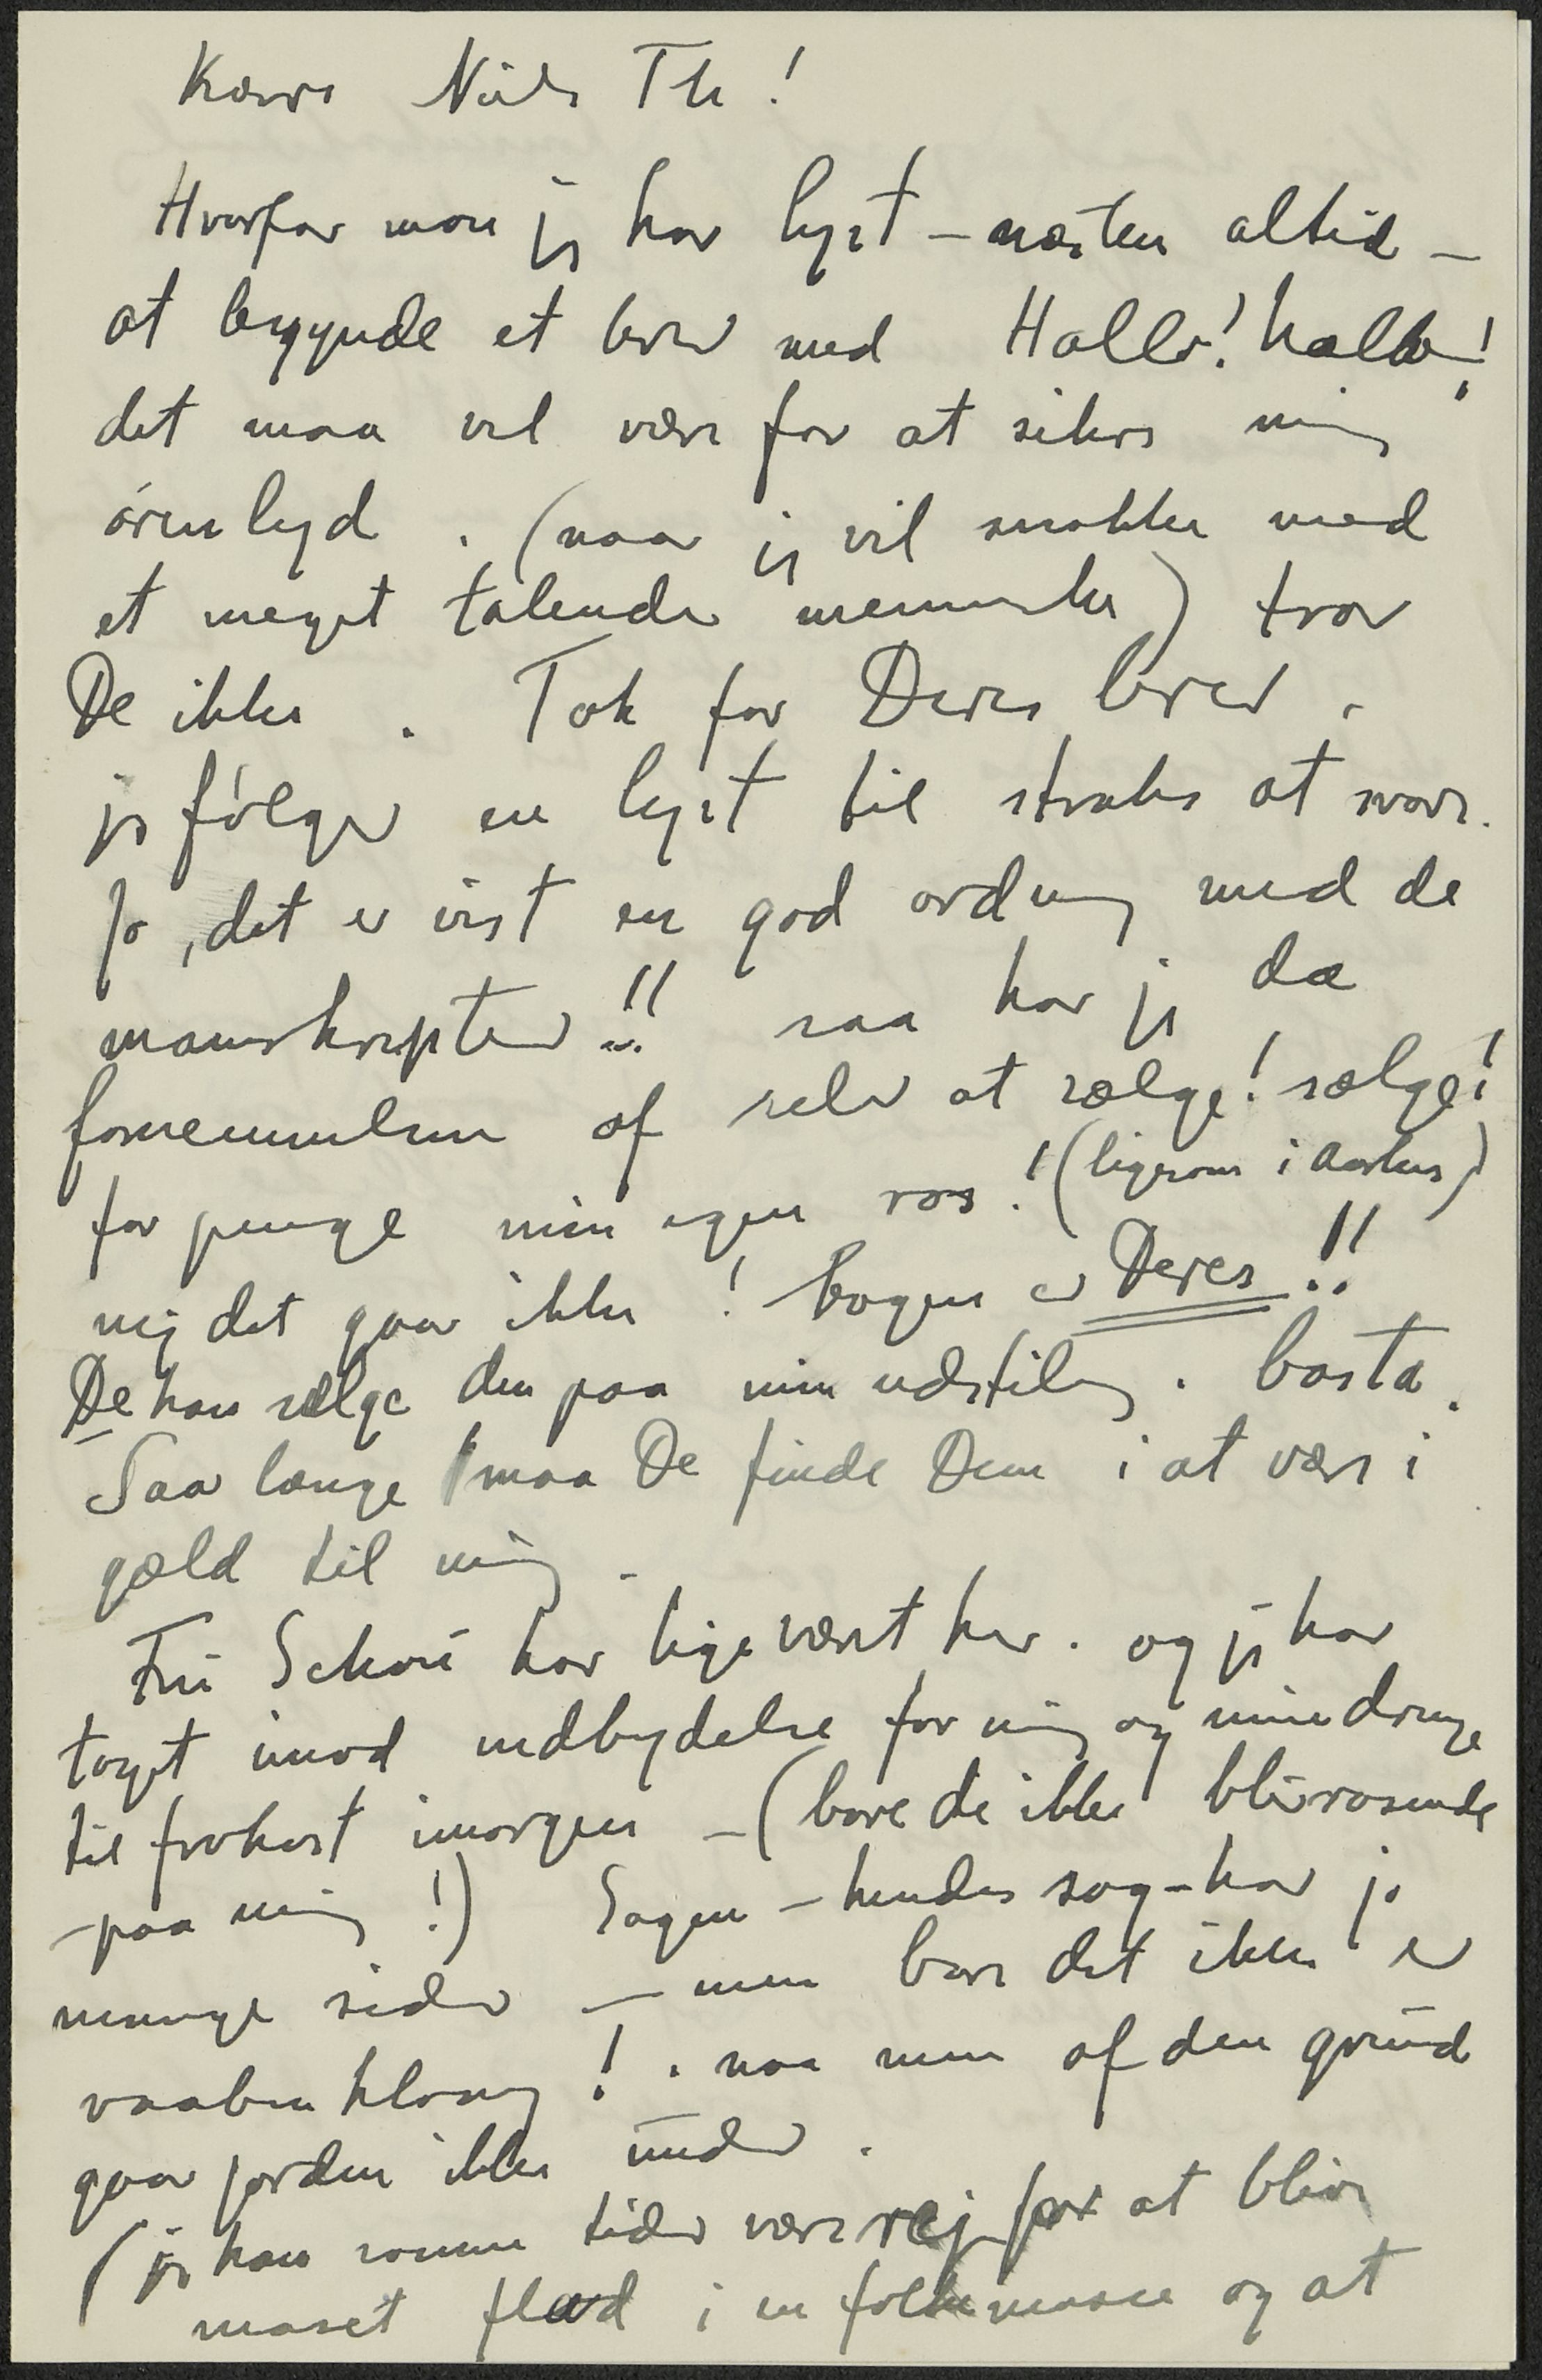 Kære Niels Th!
Hvorfor mon jeg har lyst – næsten altid –
at begynde et brev med Hallo! hallo!
det maa vel være for at sikre mig
ørenlyd. (naar jeg vil snakke med
et meget talende menneske) tror
De ikke. Tak for Deres brev.
jeg følger en lyst til straks at svare.
Jo, det er vist en god ordning med de
manuskripter!! saa har jeg da
fornemmelsen af selv at sælge! sælge!
for penge min egen ros! (ligesom i Aarhus)
nej det gaar ikke! bogen er Deres!!
De kan sælge den paa min udstilling. basta.
Saa længe maa De finde Dem i at være i
gæld til mig.
Fru Schou har lige været her. og jeg har
taget imod indbydelse for mig og mine drenge
til frokost imorgen – (bare de ikke blir rasende
– paa mig!) Sagen – hendes sag – har jo
mange sider – men bare det ikke er
vaabenklang! . naa men af den grund
gaar jorden ikke under.
(jeg kan somme tider være rej for at blive
maset flad i en folkemasse og at